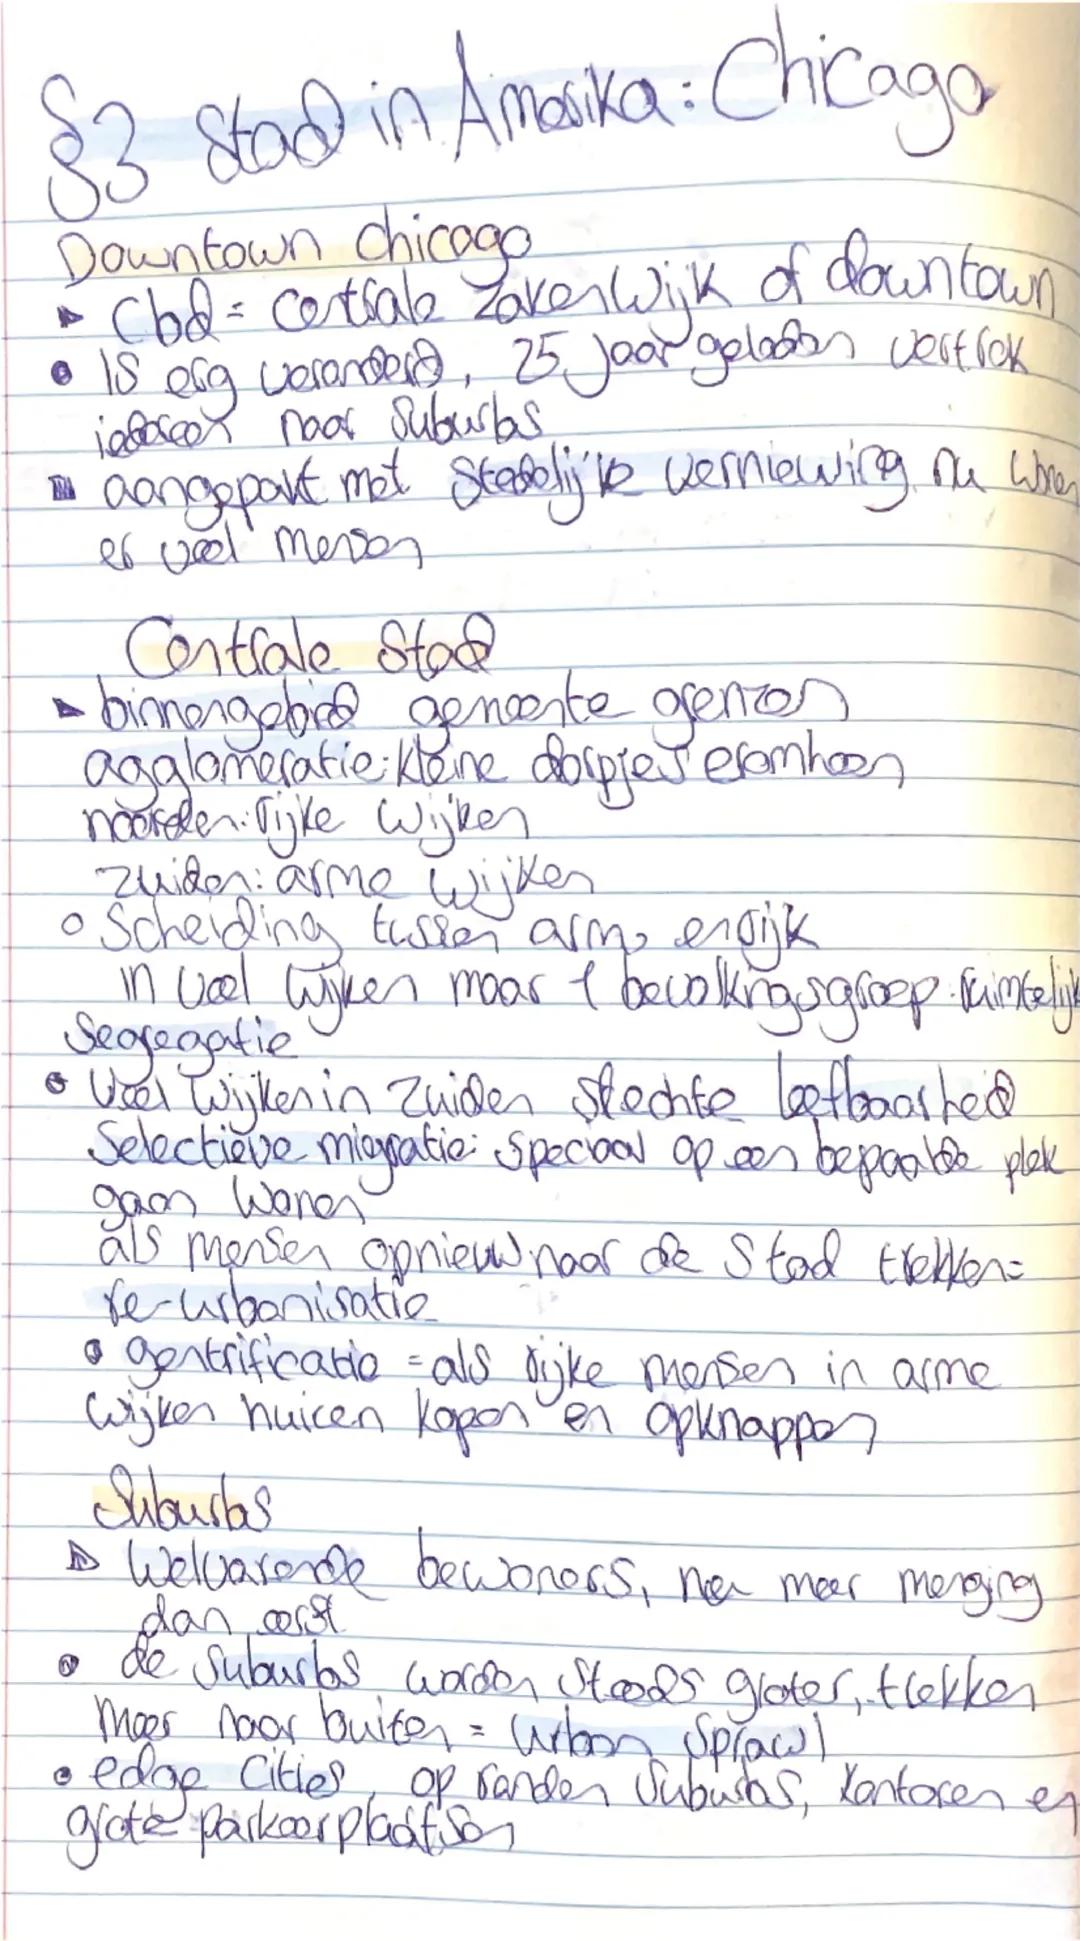 §3 Stad in Amerika: Chicago
Downtown Chicago
Cbd = Centrale Zakenwijk of downtown
is erg veranderd, 25 jaar geleden vertrok
iedereen naar Suburbs
aangepakt met Stedelijke verniewing nu wonen
er veel mensen
Centrale Stad
binnengebied gemeente grenzen
agglomeratie: kleine dorpjes eromheen
noorden: rijke wijken
zuiden: arme wijken
Scheiding tussen arm en rijk
in veel wijken maar 1 bevolkingsgroep: ruimtelijk
Segregatie
Veel wijken in Zuiden slechte leefbaarheid
Selectieve migratie: speciaal op een bepaalde plek
gaan wonen
als mensen opnieuw naar de Stad trekken =
re-urbanisatie
gentrificatie = als rijke mensen in arme
wijken huicen kopen en opknappen
Suburbs
Welvarende bewoners, meer menging
dan eerst
de Suburbs worden steeds groter, trekken
meer naar buiten = Urban Sprawl
edge Cities op randen Suburbs, Kantoren en
grote parkeerplaatsen